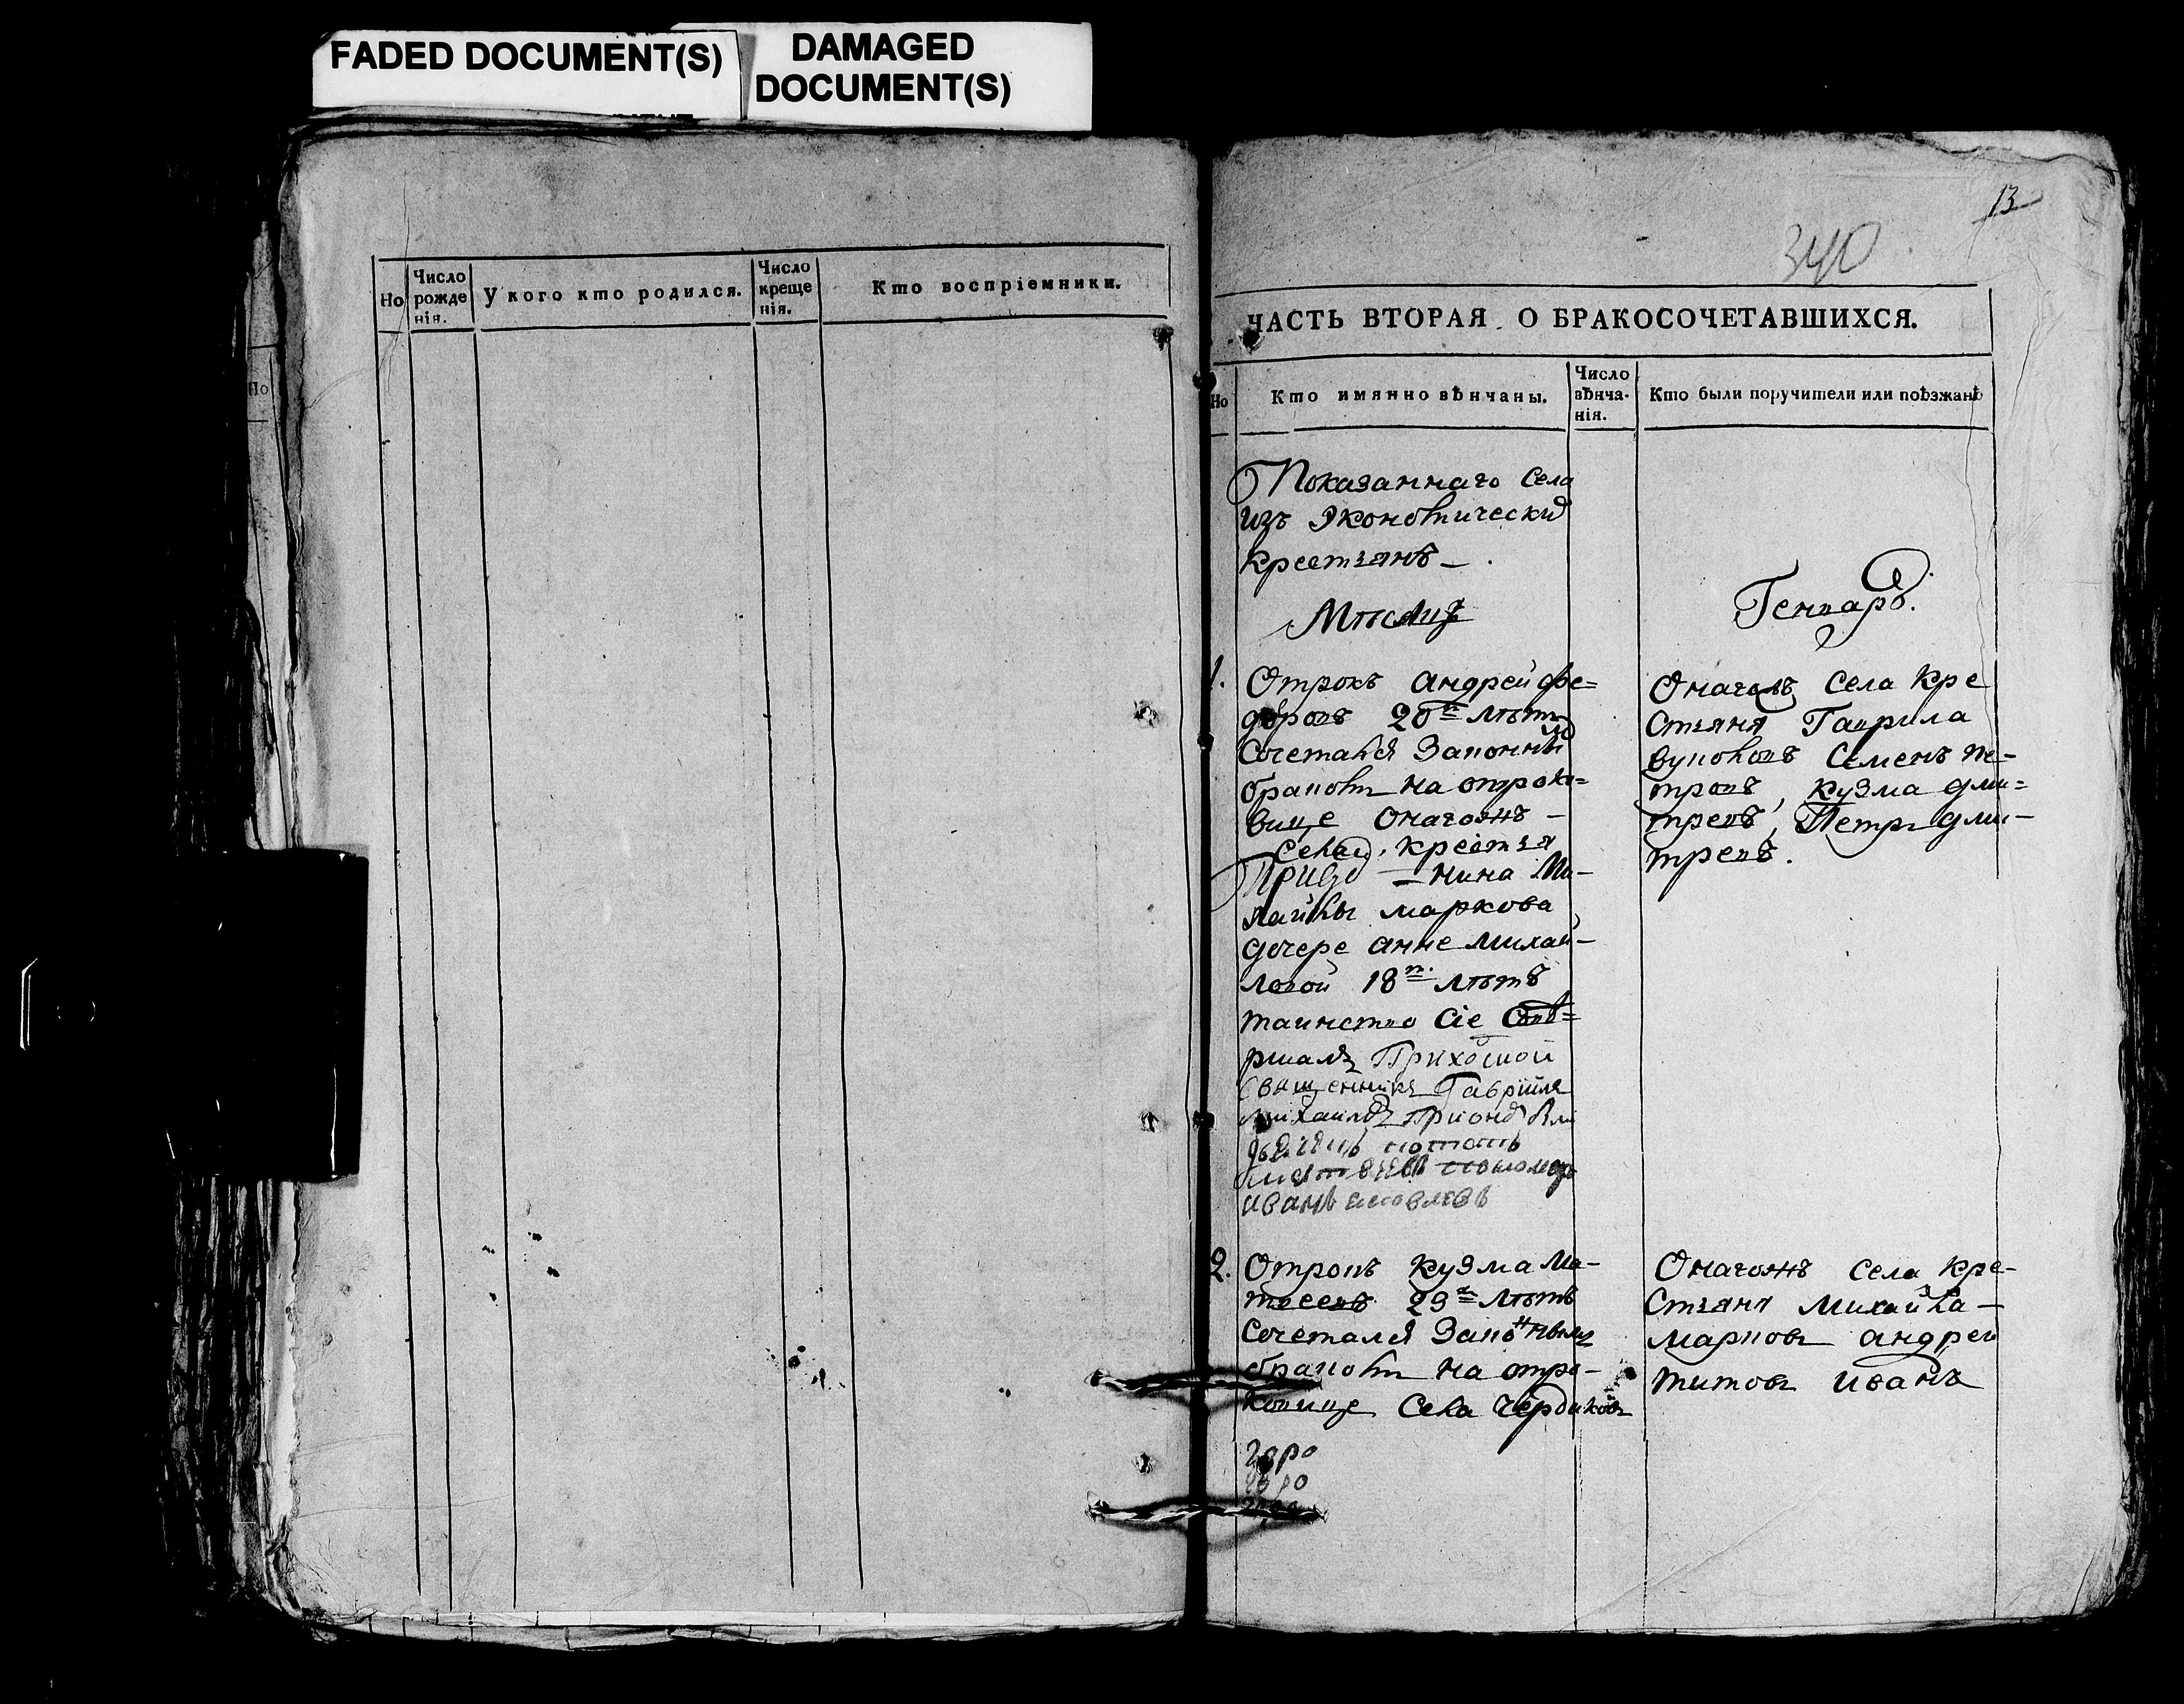 FADED DOCUMENT(S)
DAMAGED
DOCUMENT(S)
Но
Но
Число
рожде
нія.
У кого кто родился.
Число
креще
нія.
Кто воспріемники.
13
340
ЧАСТЬ ВТОРАЯ О БРАКОСОЧЕТАВШИХСЯ.
Но
Кто имянно вѣнчаны.
Число
вѣнча-
нія.
Кто были поручители или поѣзжанѣ
Показаннаго села
изъ Экономически
крестьянъ
Мѣсяцъ
Генварь.
1.
Отрокъ андрей фе=
доровъ 20 лѣтъ
Сочетался Законны
бракомъ на отроко=
вице Оного жъ
села крестья
нина Ми-
хайлы маркова
дочере анне михай-
ловой 18 лѣтъ
таинство сіе Сове=
ршалъ Приходской
Священникъ Гавріилъ
михаиловъ при ономъ
иванъ яковлевъ
Оного жъ села кре
стьяня Гаврила
Семенъ пе-
тровъ, кузма дми=
треевъ, Петръ дми-
тревъ.
2.
Отрокъ кузма Ма-
тееевъ 29 лѣтъ
Сочетался Законнымъ
бракомъ на отро-
ковице Села
Оного жъ села кре-
стьяня михайла
марковъ андрей
титовъ иванъ